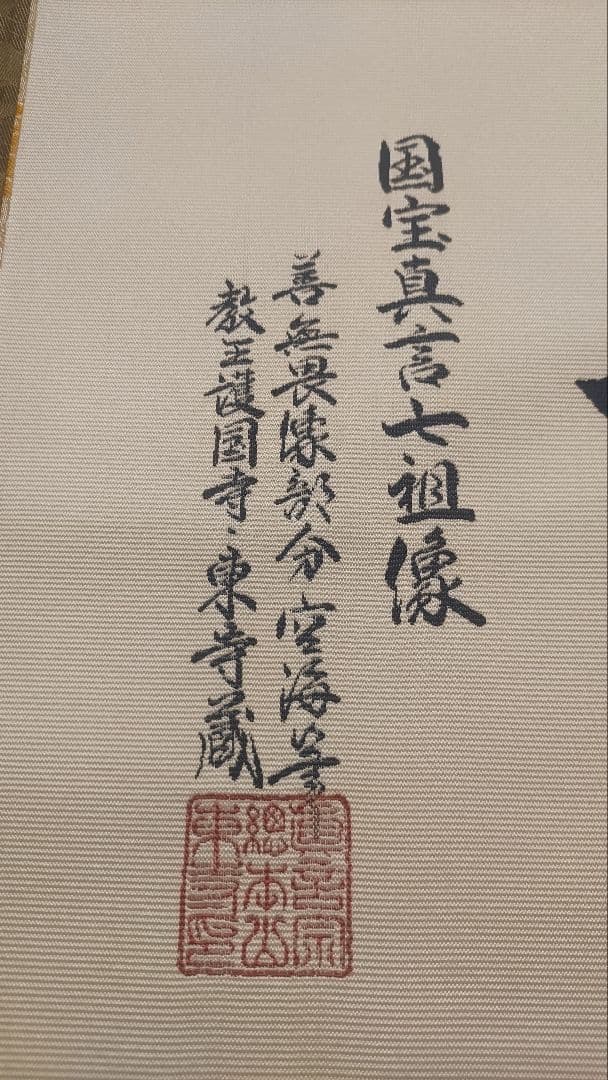 国宝真言七祖像
善無畏像部分 空海筆
教王護国寺・東寺蔵
真言宗
總本山
東寺印